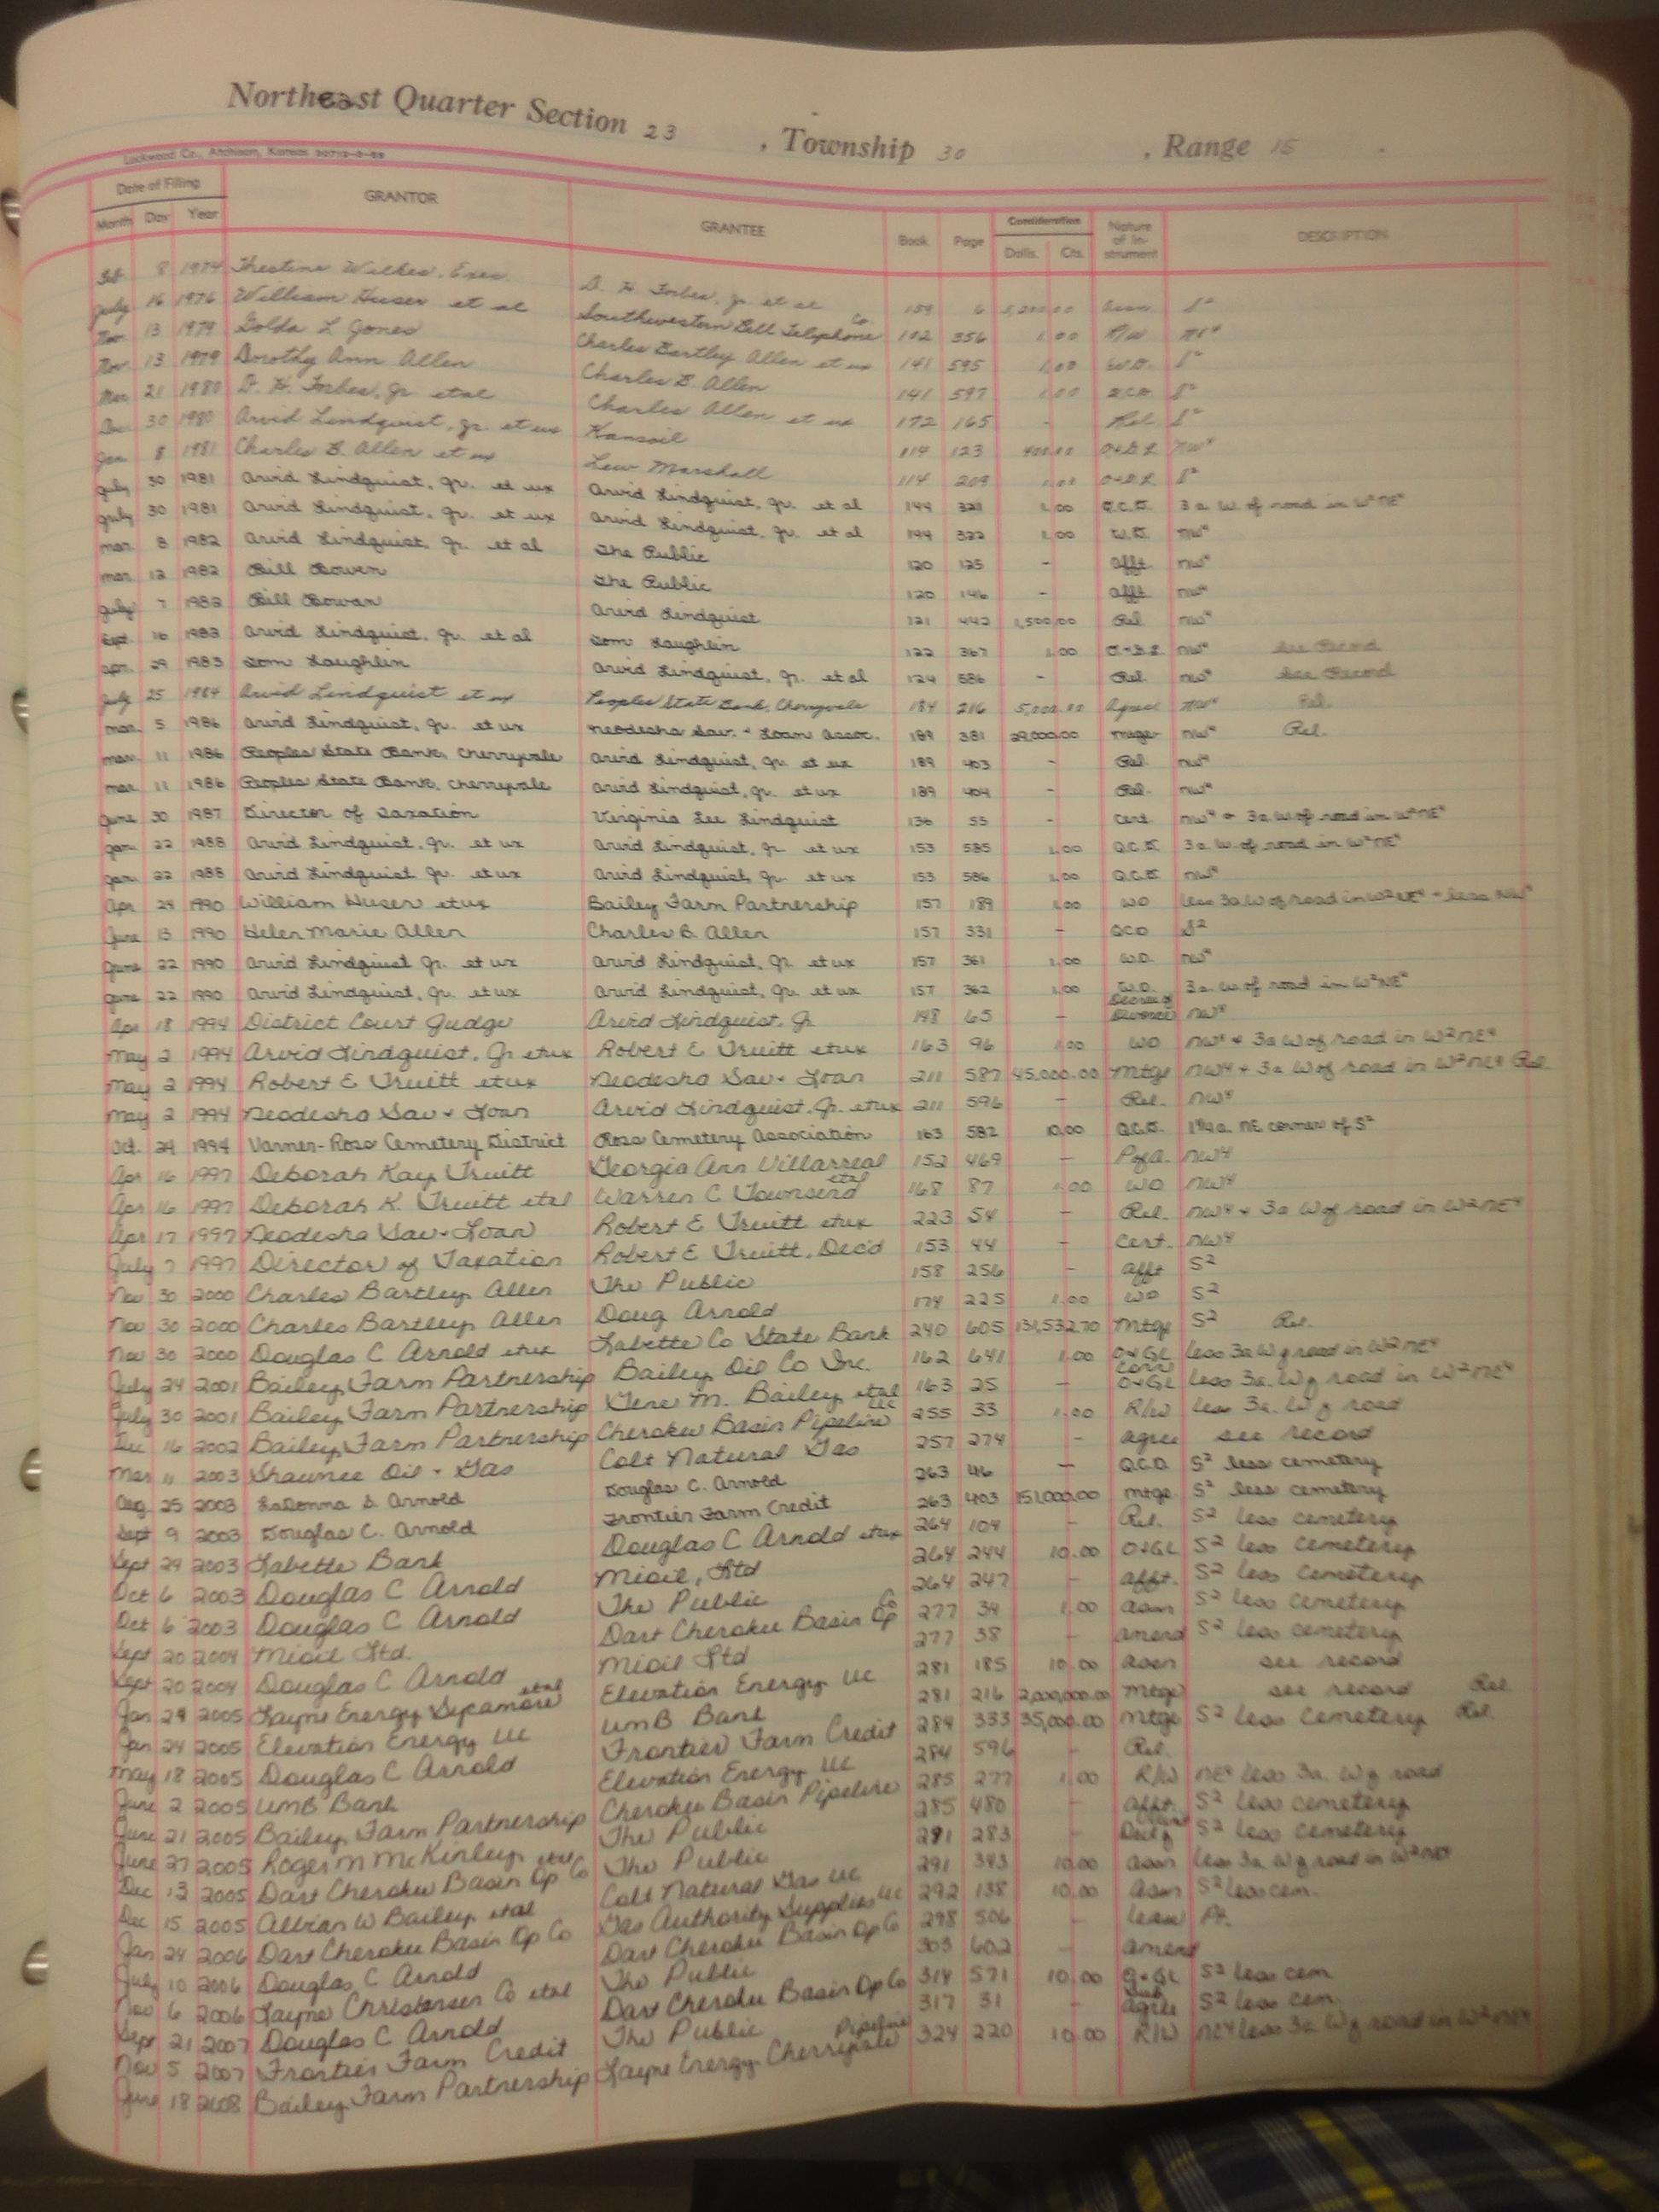 Northeast Quarter Section 23 , Township 30 , Range 15
Lockwood Co., Atchison, Kansas
Date of Filing GRANTOR GRANTEE Book Page Consideration Nature of In-strument DESCRIPTION
Month Day Year Dolls. Cts.
8 1974 Wilkes, Exec D. H. Forbes, Jr. et al 159 6 5,200.00 S²
July 16 1976 William Huser et al Southwestern Bell Telephone Co 102 356 1.00 R/W
Nov 13 1979 Golda L Jones Charles Bartley Allen et ux 141 595 1.00 W.D. S²
Nov 13 1979 Dorothy Ann Allen Charles B. Allen 141 597 1.00 Q.C.D. S²
Mar 21 1980 D. H. Forbes, Jr et al Charles Allen et ux 172 165 - Rel S²
Dec 30 1980 Arvid Lindquist, Jr. et ux Kansoil 114 123 400.00 O&G.L NW⁴
Jan 8 1981 Charles B. Allen et ux Lew Marshall 114 209 1.00 O&G.L S²
July 30 1981 Arvid Lindquist, Jr. et ux Arvid Lindquist, Jr. et al 144 321 1.00 Q.C.D. 3 a. W. of road in W²NE⁴
July 30 1981 Arvid Lindquist, Jr. et ux Arvid Lindquist, Jr. et al 144 322 1.00 W.D. NW⁴
Mar. 8 1982 Arvid Lindquist, Jr. et al The Public 120 125 - afft. NW⁴
Mar. 12 1982 Bill Bowen The Public 120 146 - afft. NW⁴
July 7 1982 Bill Bowan Arvid Lindquist 121 442 1,500.00 Rel. NW⁴
Sept. 16 1983 Arvid Lindquist, Jr. et al Tom Laughlin 122 367 1.00 O.&G.L NW⁴ See Record
Apr. 29 1983 Tom Laughlin Arvid Lindquist, Jr. et al 124 586 - Rel. NW⁴ See Record
July 25 1984 Arvid Lindquist et ux Peoples State Bank, Cherryvale 184 216 5,000.00 Agree NW⁴ Rel.
Mar. 5 1986 Arvid Lindquist, Jr. et ux Neodesha Sav. & Loan Assoc. 189 381 29,000.00 Mtge NW⁴ Rel.
Mar. 11 1986 Peoples State Bank, Cherryvale Arvid Lindquist, Jr. et ux 189 403 - Rel. NW⁴
Mar. 11 1986 Peoples State Bank, Cherryvale Arvid Lindquist, Jr. et ux 189 404 - Rel. NW⁴
June 30 1987 Director of Taxation Virginia Lee Lindquist 136 55 - Cert. NW⁴ & 3a. W. of road in W²NE⁴
Jan. 22 1988 Arvid Lindquist, Jr. et ux Arvid Lindquist, Jr. et ux 153 585 1.00 Q.C.D. 3 a. W. of road in W²NE⁴
Jan. 22 1988 Arvid Lindquist, Jr. et ux Arvid Lindquist, Jr. et ux 153 586 1.00 Q.C.D. NW⁴
Apr. 24 1990 William Huser et ux Bailey Farm Partnership 157 189 1.00 WD Less 3a. W of road in W²NE⁴ - less NW⁴
June 13 1990 Helen Marie Allen Charles B. Allen 157 331 - QCD S²
June 22 1990 Arvid Lindquist Jr. et ux Arvid Lindquist, Jr. et ux 157 361 1.00 W.D. NW⁴
June 22 1990 Arvid Lindquist, Jr. et ux Arvid Lindquist, Jr. et ux 157 362 1.00 W.D. 3 a. W. of road in W²NE⁴
Apr 18 1994 District Court Judge Arvid Lindquist, Jr 148 65 - Decree of Divorce NW⁴
May 2 1994 Arvid Lindquist, Jr etux Robert E Truitt etux 163 96 1.00 WD NW⁴ & 3a W of road in W²NE⁴
May 2 1994 Robert E Truitt etux Neodesha Sav & Loan 211 587 45,000.00 Mtge NW⁴ & 3a W of road in W²NE⁴ Rel.
May 2 1994 Neodesha Sav & Loan Arvid Lindquist, Jr. etux 211 596 - Rel. NW⁴
Oct. 24 1994 Varner-Ross Cemetery District Ross Cemetery Association 163 582 10.00 Q.C.D. NE corner of S²
Apr 16 1997 Deborah Kay Truitt Georgia Ann Villarreal 152 469 - PofA. NW⁴
Apr 16 1997 Deborah K. Truitt etal Warren C Townsend etal 168 87 1.00 WD NW⁴
Apr 17 1997 Neodesha Sav & Loan Robert E Truitt etux 223 54 - Rel. NW⁴ & 3a W of road in W²NE⁴
July 7 1997 Director of Taxation Robert E Truitt, Dec'd 153 44 - Cert. NW⁴
Nov 30 2000 Charles Bartley Allen The Public 158 256 - afft S²
Nov 30 2000 Charles Bartley Allen Doug Arnold 174 225 1.00 WD S²
Nov 30 2000 Douglas C Arnold etux Labette Co State Bank 240 605 131,532.70 Mtge S² Rel.
July 24 2001 Bailey Farm Partnership Bailey Oil Co Inc. 162 641 1.00 O&GL Less 3a W of road in W²NE⁴
July 30 2001 Bailey Farm Partnership Gene M. Bailey etal 163 25 - Corr O&GL Less 3a. W of road in W²NE⁴
Dec 16 2002 Bailey Farm Partnership Cherokee Basin Pipeline LLC 255 33 1.00 R/W Less 3a. W of road
Mar 11 2003 Shawnee Oil & Gas Colt Natural Gas 257 274 - agree see record
Aug 25 2003 LaDonna S. Arnold Douglas C. Arnold 263 46 - Q.C.D. S² less cemetery
Sept 9 2003 Douglas C. Arnold Frontier Farm Credit 263 403 151,000.00 Mtge. S² less cemetery
Sept 29 2003 Labette Bank Douglas C Arnold etux 264 104 - Rel. S² less cemetery
Oct 6 2003 Douglas C Arnold Mioil, Ltd 264 244 10.00 O&GL S² less cemetery
Oct 6 2003 Douglas C Arnold The Public 264 247 - afft. S² less cemetery
Sept 20 2004 Mioil Ltd. Dart Cherokee Basin Op Co 277 34 1.00 assn S² less cemetery
Sept 20 2004 Douglas C Arnold Mioil Ltd 277 38 - amend S² less cemetery
Jan 24 2005 Layne Energy Sycamore etal Elevation Energy LLC 281 185 10.00 assn see record
Jan 24 2005 Elevation Energy LLC UMB Bank 281 216 2,000,000.00 Mtge see record Rel
May 18 2005 Douglas C Arnold Frontier Farm Credit 284 333 35,000.00 Mtge S² less cemetery Rel.
June 2 2005 UMB Bank Elevation Energy LLC 284 596 - Rel.
June 21 2005 Bailey Farm Partnership Cherokee Basin Pipeline 285 277 1.00 R/W NE⁴ less 3a. W of road
June 27 2005 Roger M McKinley etal The Public 285 480 - afft. S² less cemetery
Dec 13 2005 Dart Cherokee Basin Op Co The Public 291 283 - S² less cemetery
Dec 15 2005 Albian W Bailey etal Colt Natural Gas LLC 291 343 10.00 assn Less 3a. W of road in W²NE⁴
Jan 24 2006 Dart Cherokee Basin Op Co Gas Authority Supplies LLC 292 138 10.00 assn S² less cem.
July 10 2006 Douglas C Arnold Dart Cherokee Basin Op Co 298 506 - Lease Pt.
Nov 6 2006 Layne Christensen Co etal The Public 303 602 - amend
Sept 21 2007 Douglas C Arnold Dart Cherokee Basin Op Co 314 571 10.00 O&GL S² less cem
Nov 5 2007 Frontier Farm Credit The Public 317 31 - Sub agree S² less cem.
June 18 2008 Bailey Farm Partnership Layne Energy Cherryvale Pipeline 324 220 10.00 R/W NE⁴ less 3a. W of road in W²NE⁴